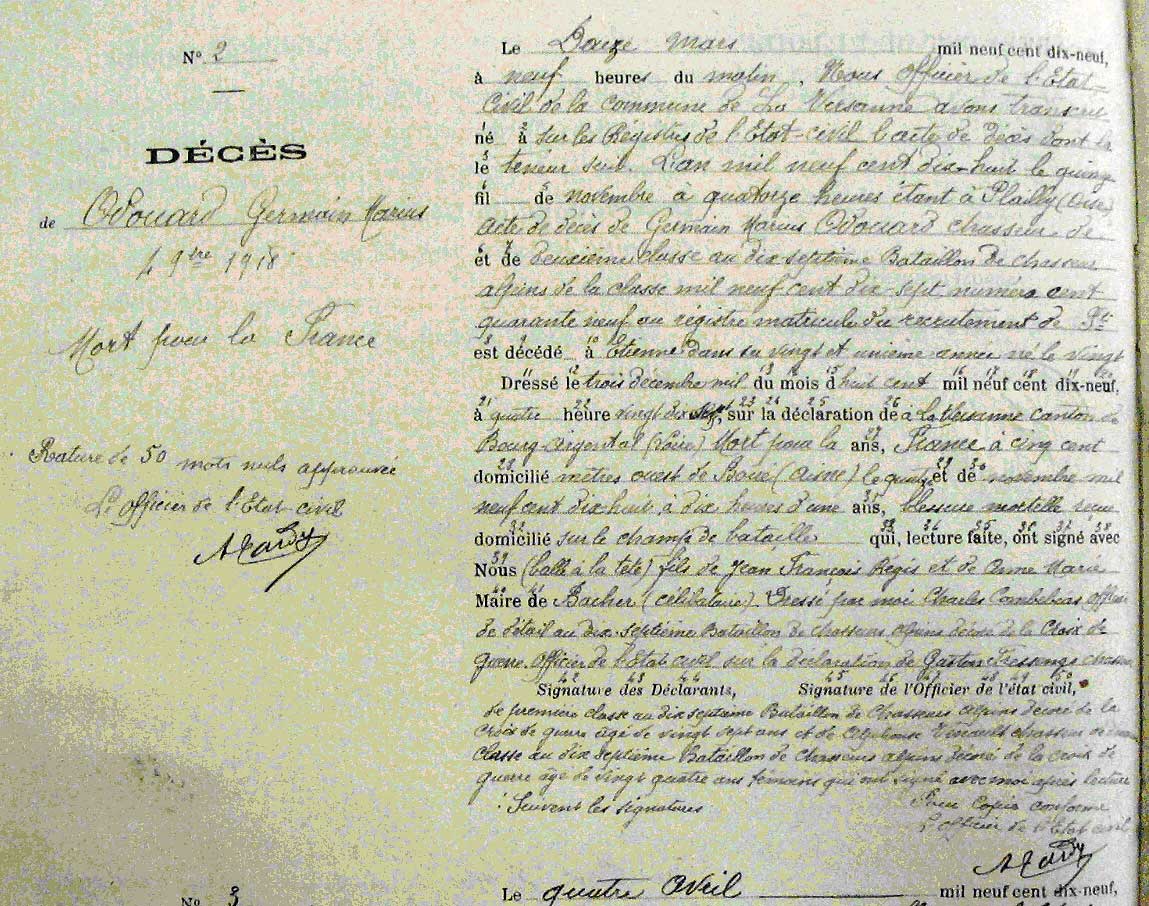 N° 2
DÉCÈS
de Odouard Germain Marius
4 9bre 1918
Mort pour la France
Rature de 50 mots nuls approuvée
L'officier de l'Etat-civil
Le Douze mars mil neuf cent dix-neuf,
à neuf heures du matin, Nous Officier de l'Etat-
Civil de la commune de La Versanne avons transcrit
né à sur les Régistres de l'Etat-civil l'acte de décès dont la
le teneur suit. L'an mil neuf cent dix-huit le quinze
fil de novembre à quatorze heures étant à Plailly (Oise)
acte de décès de Germain Marius Odouard chasseur de
et de deuxième classe au dix septième Bataillon de chasseurs
alpins de la classe mil neuf cent dix-sept numéro cent
quarante neuf au régistre matricule du recrutement de St
est décédé à Etienne dans sa vingt et unième année né le vingt
Dressé le trois décembre mil du mois d huit cent mil neuf cent dix-neuf,
à quatre heure vingt dix sept, sur la déclaration de à La Versanne canton de
Bourg-Argental (Loire) Mort pour la ans, France à cinq cent
domicilié mètres ouest de Boué (Aisne) le quatre et de novembre mil
neuf cent dix huit à dix heures d'une ans, blessure mortelle reçue
domicilié sur le champ de bataille qui, lecture faite, ont signé avec
Nous (balle à la tête) fils de Jean François Régis et de Anne Marie
Maire de Bacher (célibataire). Dressé par moi Charles Combeleras Officier
de détail au dix septième Bataillon de chasseurs alpins décoré de la Croix de
guerre. Officier de l'Etat civil sur la déclaration de Gaston chasseur
Signature des Déclarants, Signature de l'Officier de l'état civil,
de première classe au dix septième Bataillon de Chasseurs Alpins décoré de la
Croix de guerre âgé de vingt sept ans et de Alphonse chasseur de
classe au dix septième Bataillon de Chasseurs alpins décoré de la croix de
guerre âgé de vingt quatre ans témoins qui ont signé avec moi après lecture
Suivent les signatures
Pour Copie conforme
L'officier de l'Etat civil
N° 3
Le quatre Avril mil neuf cent dix-neuf,